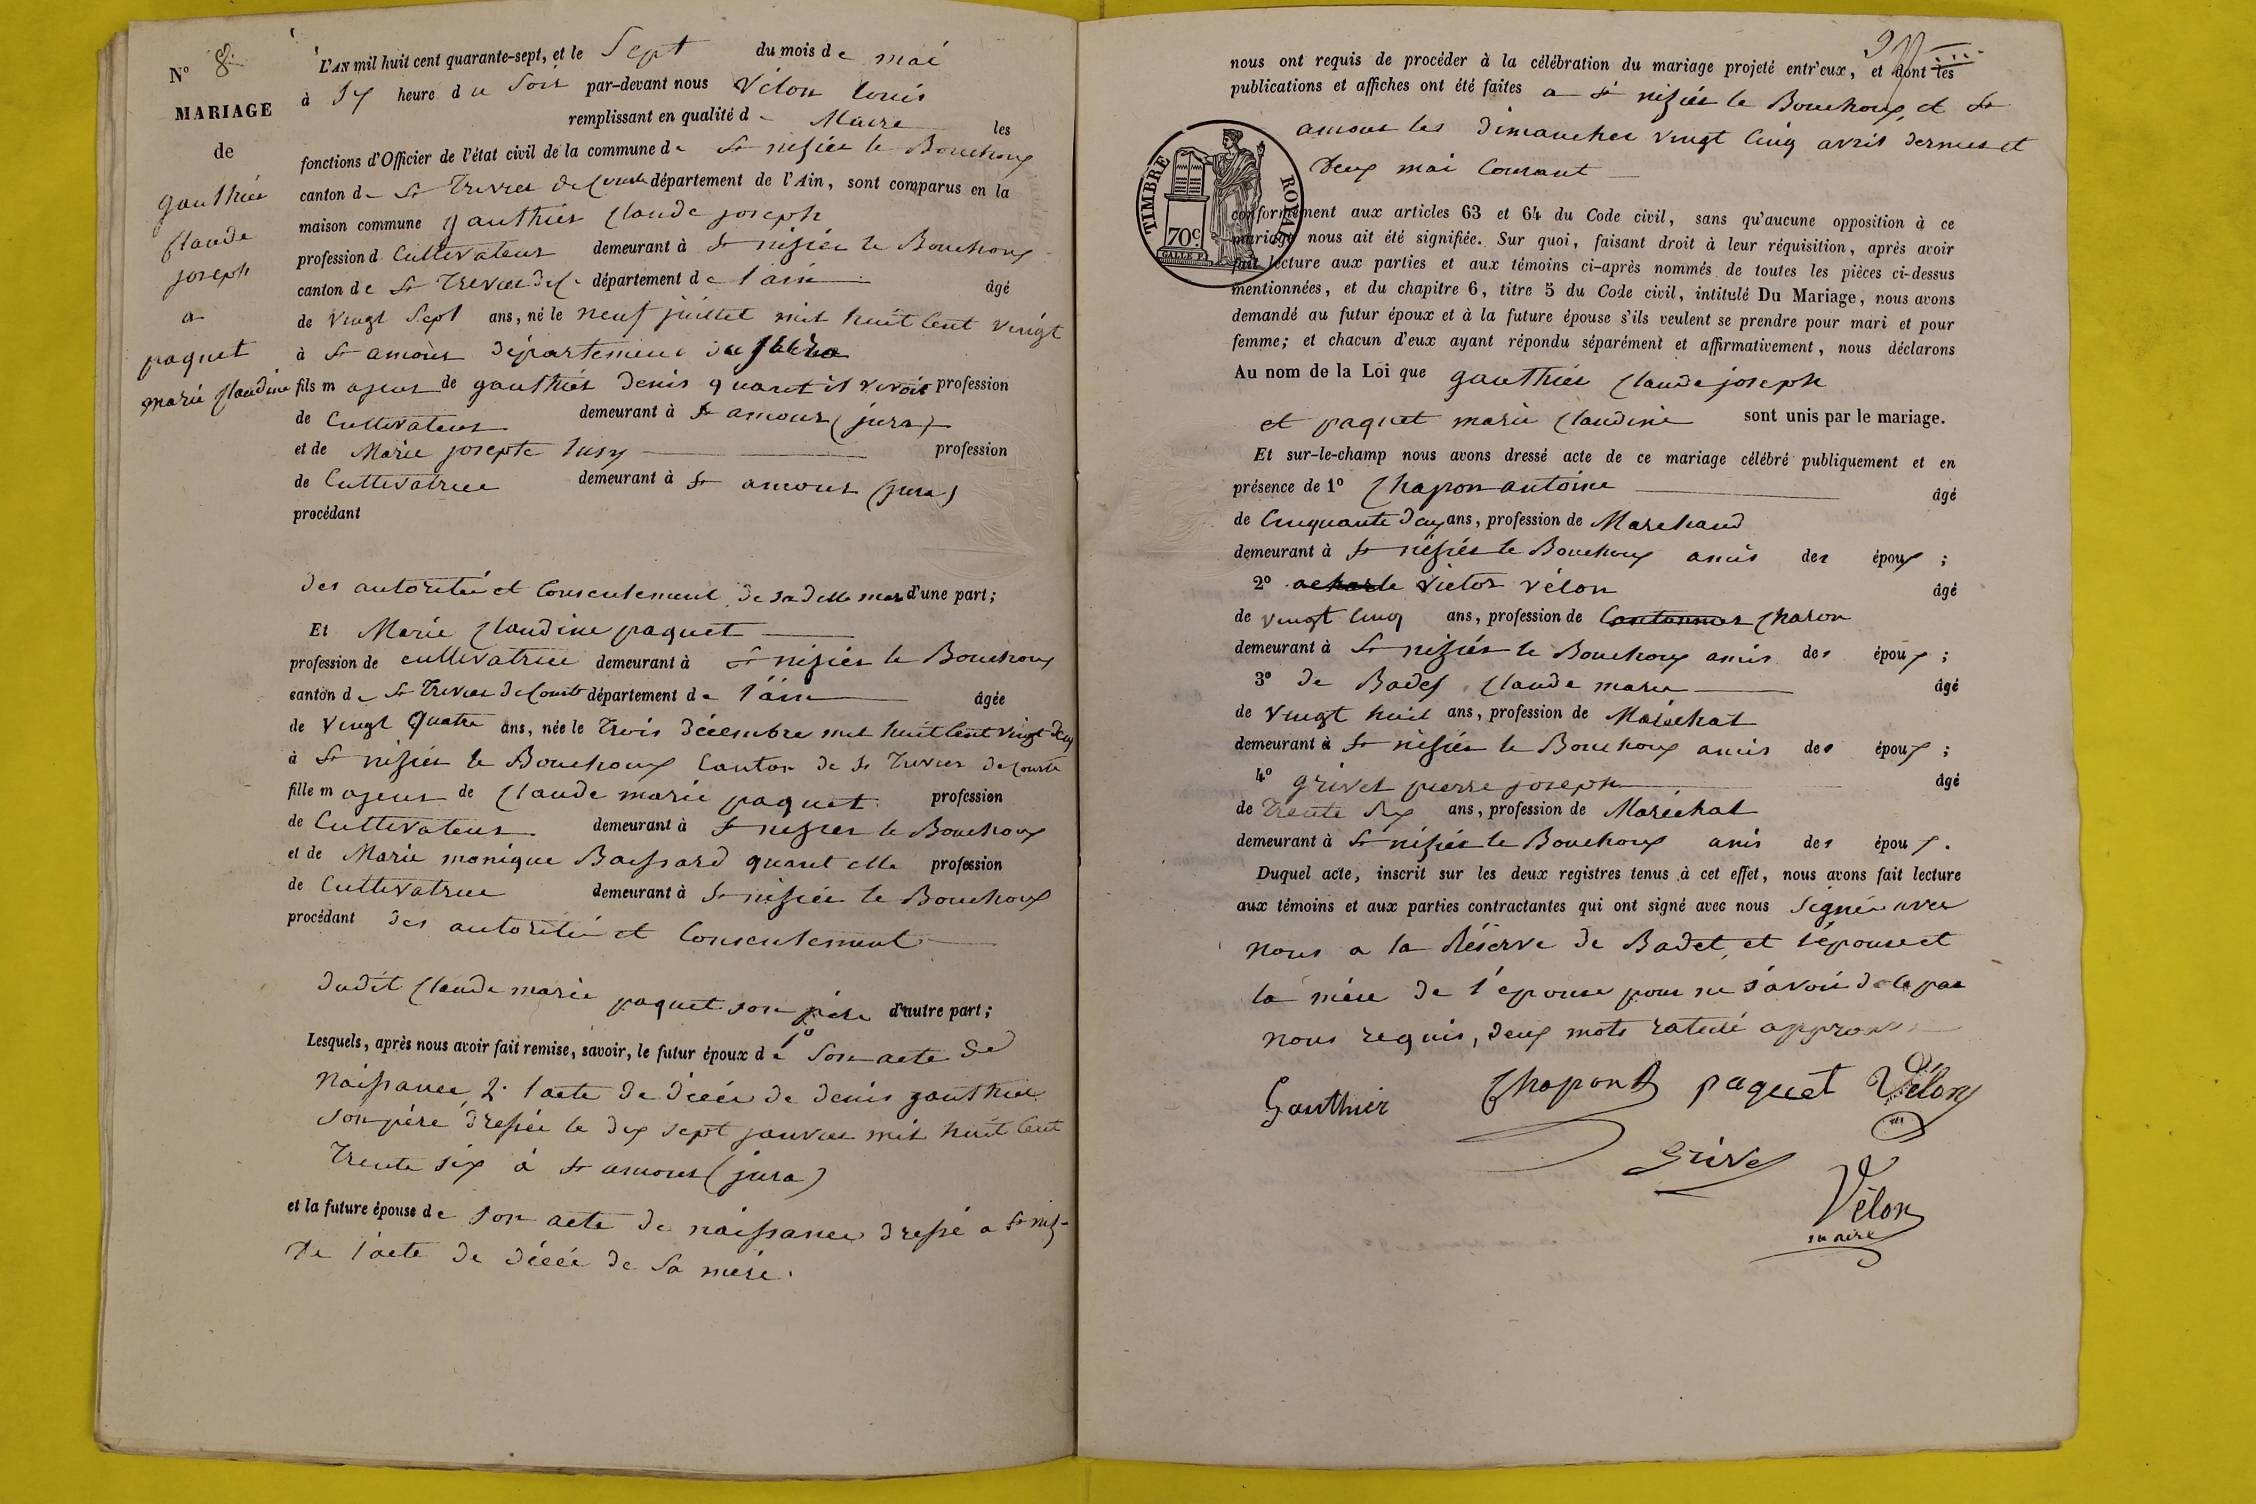 N° 8
MARIAGE
de
gauthier
claude
joseph
a
paquet
marie claudine
L'AN mil huit cent quarante-sept, et le Sept du mois de mai
à Six heure du Soir par-devant nous Vélon Louis
remplissant en qualité de Maire les
fonctions d'Officier de l'état civil de la commune de St nizier le Bouchoux
canton de St Trivier de Courte département de l'Ain, sont comparus en la
maison commune gauthier claude joseph
profession d Cultivateur demeurant à St nizier le Bouchoux
canton de St Trivier de C. département de l'ain âgé
de Vingt Sept ans, né le neuf juillet mil huit Cent Vingt
à St amour département du jura
fils majeur de gauthier denis quant il vivoit profession
de Cultivateur demeurant à St amour (jura)
et de Marie josepte Lusy profession
de Cultivatrice demeurant à St amour (jura)
procédant
des autorité et Consentement de sa dette mer d'une part;
Et Marie Claudine paquet
profession de cultivatrice demeurant à St nizier le Bouchoux
canton de St Trivier de Courte département de l'ain âgée
de Vingt Quatre ans, née le Trois décembre mil huit Cent Vingt deux
à St nizier le Bouchoux Canton de St Trivier de Courte
fille majeur de Claude marie paquet profession
de Cultivateur demeurant à St nizier le Bouchoux
et de Marie monique Baissard quant elle profession
de Cultivatrice demeurant à St nizier le Bouchoux
procédant des autorité et Consentement
dudit Claude marie paquet son père d'autre part;
Lesquels, après nous avoir fait remise, savoir, le futur époux de 1° Son acte de
Naissance, 2° l'acte de décée de denis gauthier
son père dressée le dix sept janvier mil huit Cent
Trente six à St amour (jura)
et la future épouse de son acte de naissance dressé a St niz-
De l'acte de décée de Sa mère.
nous ont requis de procéder à la célébration du mariage projeté entr'eux, et dont les
publications et affiches ont été faites a St nizier le Bouchoux, et St
amour les dimancher vingt Cinq avril dernier et
Deux mai Courant
TIMBRE ROYAL
70c
conformément aux articles 63 et 64 du Code civil, sans qu'aucune opposition à ce
mariage nous ait été signifiée. Sur quoi, faisant droit à leur réquisition, après avoir
fait lecture aux parties et aux témoins ci-après nommés de toutes les pièces ci-dessus
mentionnées, et du chapitre 6, titre 5 du Code civil, intitulé Du Mariage, nous avons
demandé au futur époux et à la future épouse s'ils veulent se prendre pour mari et pour
femme; et chacun d'eux ayant répondu séparément et affirmativement, nous déclarons
Au nom de la Loi que gauthier Claude joseph
et paquet marie Claudine sont unis par le mariage.
Et sur-le-champ nous avons dressé acte de ce mariage célébré publiquement et en
présence de 1° Chapon antoine âgé
de Cinquante deux ans, profession de Marchand
demeurant à St nizier le Bouchoux amis des époux ;
2° Victor Vélon âgé
de vingt Cinq ans, profession de Cantonnier Charon
demeurant à St nizier le Bouchoux amis des époux ;
3° de Badet Claude marie âgé
de Vingt huit ans, profession de Maréchal
demeurant à St nizier le Bouchoux amis des époux ;
4° grivet pierre joseph âgé
de Trente Six ans, profession de Maréchal
demeurant à St nizier le Bouchoux amis des époux.
Duquel acte, inscrit sur les deux registres tenus à cet effet, nous avons fait lecture
aux témoins et aux parties contractantes qui ont signé avec nous Signée avec
nous a la Réserve de Badet, et l'épouse et
la mère de l'épouse pour ne savoir de ce par
nous requis, deux mots raturé approuvé
Gauthier Chapon A paquet Vélon
Grivet
Vélon
maire